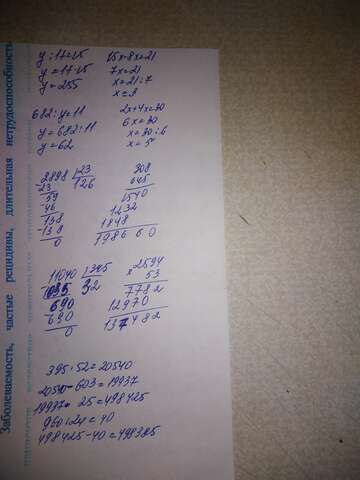 y : 17 = 15
y = 17 · 15
y = 255
15x - 8x = 21
7x = 21
x = 21 : 7
x = 3
682 : y = 11
y = 682 : 11
y = 62
2x + 4x = 30
6x = 30
x = 30 : 6
x = 5
2898 | 23
23 126
59
46
138
138
0
308
645
1540
1232
1848
198660
11040 | 345
1035 32
690
690
0
× 2594
53
7782
12970
137482
395 · 52 = 20540
20540 - 603 = 19937
19937 · 25 = 498425
960 : 24 = 40
498425 - 40 = 498385
Заболеваемость, частые рецидивы, длительная нетрудоспособность